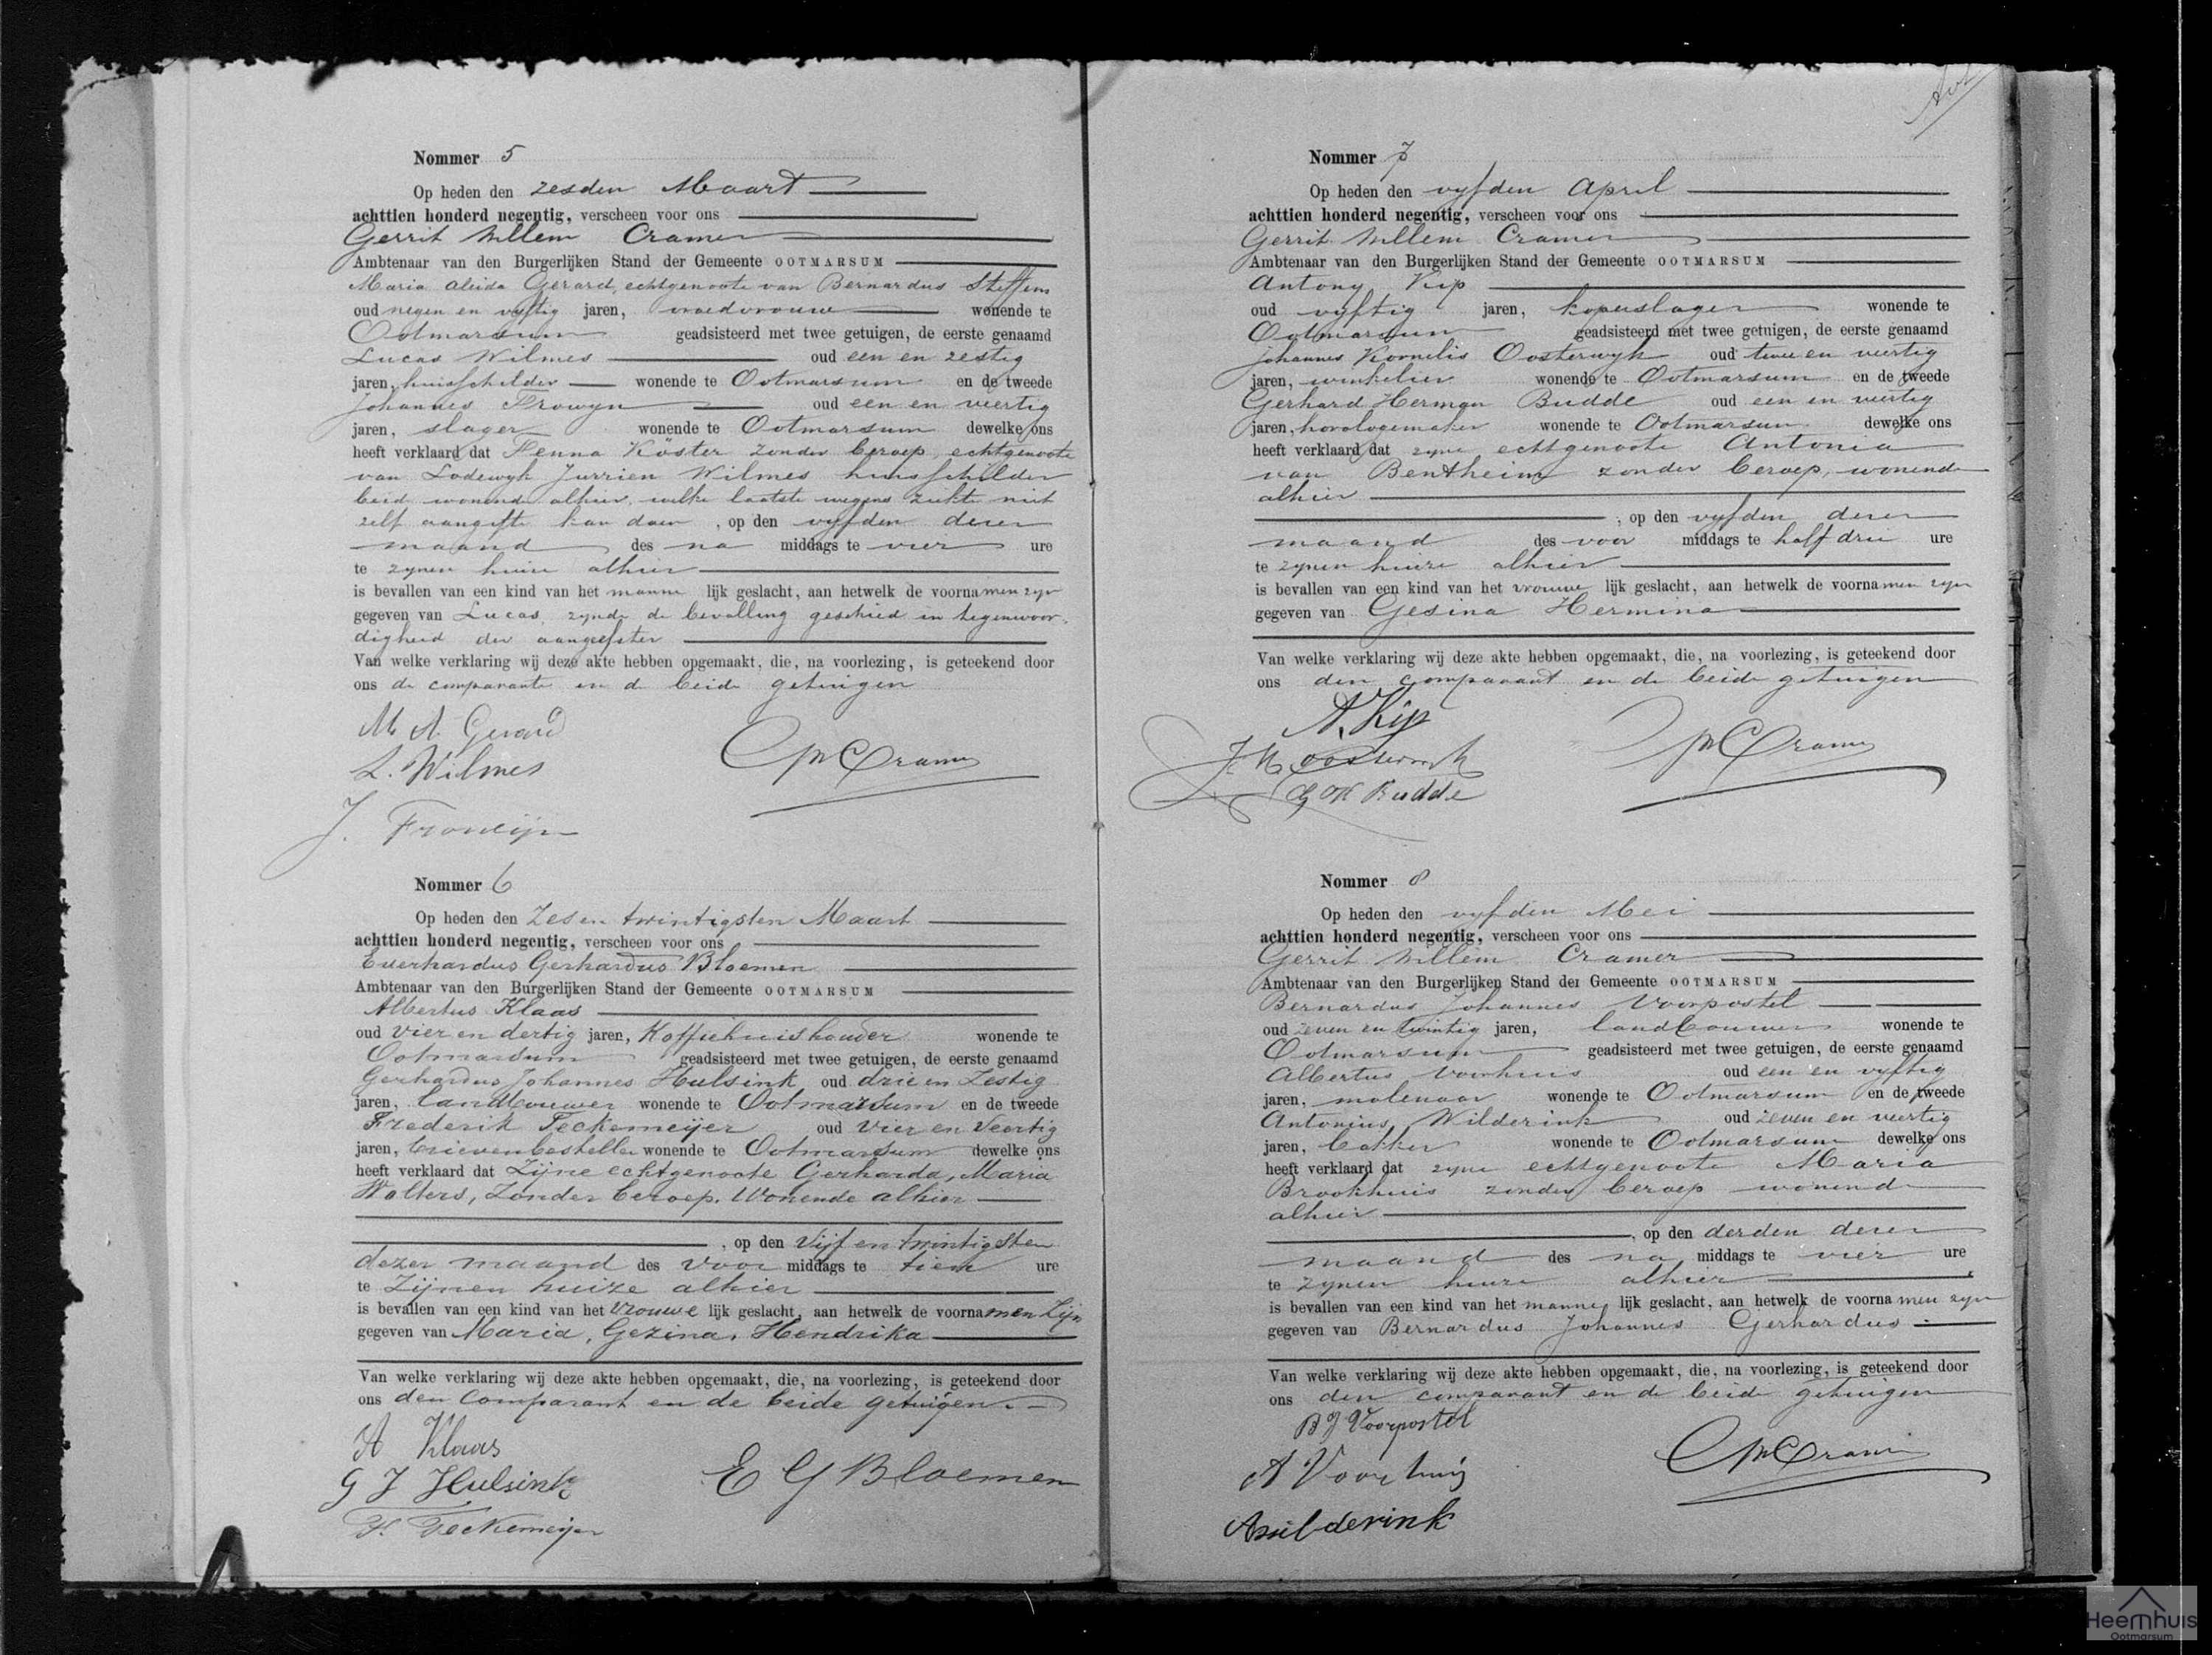 Nommer 5
Op heden den zesden Maart
achttien honderd negentig, verscheen voor ons
Gerrit Willem Cramer
Ambtenaar van den Burgerlijken Stand der Gemeente OOTMARSUM
Maria Aleida Gerard, echtgenoote van Bernardus Steffens
oud negen en vyftig jaren, vroedvrouw wonende te
Ootmarsum geadsisteerd met twee getuigen, de eerste genaamd
Lucas Wilmes oud een en zestig
jaren, huisschilder wonende te Ootmarsum en de tweede
Johannes Frowyn oud een en veertig
jaren, slager wonende te Ootmarsum dewelke ons
heeft verklaard dat Fenna Köster zonder beroep, echtgenoote
van Lodewyk Jurrien Wilmes huisschilder
beid wonende alhier, welke laatste wegens ziekte niet
zelf aangifte kan doen, op den vyfden dezer
maand des na middags te vier ure
te zynen huize alhier
is bevallen van een kind van het manne lijk geslacht, aan hetwelk de voornamen zyn
gegeven van Lucas, zynde de bevalling geschied in tegenwoor-
digheid der aangeefster
Van welke verklaring wij deze akte hebben opgemaakt, die, na voorlezing, is geteekend door
ons de comparante en de beide getuigen
M A Gerard
L. Wilmes
GWCramer
J. Frowijn
Nommer 6
Op heden den Zes en twintigsten Maart
achttien honderd negentig, verscheen voor ons
Everhardus Gerhardus Bloemen
Ambtenaar van den Burgerlijken Stand der Gemeente OOTMARSUM
Albertus Klaas
oud Vier en dertig jaren, Koffiehuishouder wonende te
Ootmarsum geadsisteerd met twee getuigen, de eerste genaamd
Gerhardus Johannes Hulsink oud drie en Zestig
jaren, landbouwer wonende te Ootmarsum en de tweede
Frederik Teckemeijer oud Vier en Veertig
jaren, brievenbesteller wonende te Ootmarsum dewelke ons
heeft verklaard dat Zijne echtgenoote Gerharda, Maria
Wolters, Zonder beroep. Wonende alhier
, op den Vijf en twintigsten
dezer maand des Voor middags te tien ure
te Zijnen huize alhier
is bevallen van een kind van het Vrouwe lijk geslacht, aan hetwelk de voornamen Zijn
gegeven van Maria, Gezina, Hendrika
Van welke verklaring wij deze akte hebben opgemaakt, die, na voorlezing, is geteekend door
ons den Comparant en de beide getuigen.
A Klaas
G J Hulsink
E G Bloemen
F. Teckemeijer
Nommer 7
Op heden den vyfden April
achttien honderd negentig, verscheen voor ons
Gerrit Willem Cramer
Ambtenaar van den Burgerlijken Stand der Gemeente OOTMARSUM
Antony Kip
oud vyftig jaren, koperslager wonende te
Ootmarsum geadsisteerd met twee getuigen, de eerste genaamd
Johannes Kornelis Oosterwyk oud twee en veertig
jaren, winkelier wonende te Ootmarsum en de tweede
Gerhard Herman Budde oud een en veertig
jaren, horologemaker wonende te Ootmarsum dewelke ons
heeft verklaard dat zyne echtgenoote Antonia
van Bentheim zonder beroep, wonende
alhier
, op den vyfden dezer
maand des voor middags te half drie ure
te zynen huize alhier
is bevallen van een kind van het vrouwe lijk geslacht, aan hetwelk de voornamen zyn
gegeven van Gesina Hermina
Van welke verklaring wij deze akte hebben opgemaakt, die, na voorlezing, is geteekend door
ons den comparant en de beide getuigen
A. Kip
J. K. Oosterwijk
GWCramer
G H Budde
Nommer 8
Op heden den vyfden Mei
achttien honderd negentig, verscheen voor ons
Gerrit Willem Cramer
Ambtenaar van den Burgerlijken Stand der Gemeente OOTMARSUM
Bernardus Johannes Voorpostel
oud zeven en twintig jaren, landbouwer wonende te
Ootmarsum geadsisteerd met twee getuigen, de eerste genaamd
Albertus Voorhuis oud een en vyftig
jaren, molenaar wonende te Ootmarsum en de tweede
Antonius Wilderink oud zeven en veertig
jaren, bakker wonende te Ootmarsum dewelke ons
heeft verklaard dat zyne echtgenoote Maria
Brookhuis zonder beroep wonende
alhier
, op den derden dezer
maand des na middags te vier ure
te zynen huize alhier
is bevallen van een kind van het manne lijk geslacht, aan hetwelk de voornamen zyn
gegeven van Bernardus Johannes Gerhardus
Van welke verklaring wij deze akte hebben opgemaakt, die, na voorlezing, is geteekend door
ons den comparant en de beide getuigen
B J Voorpostel
A Voorhuis
GWCramer
A Wilderink
Heemhuis
Ootmarsum